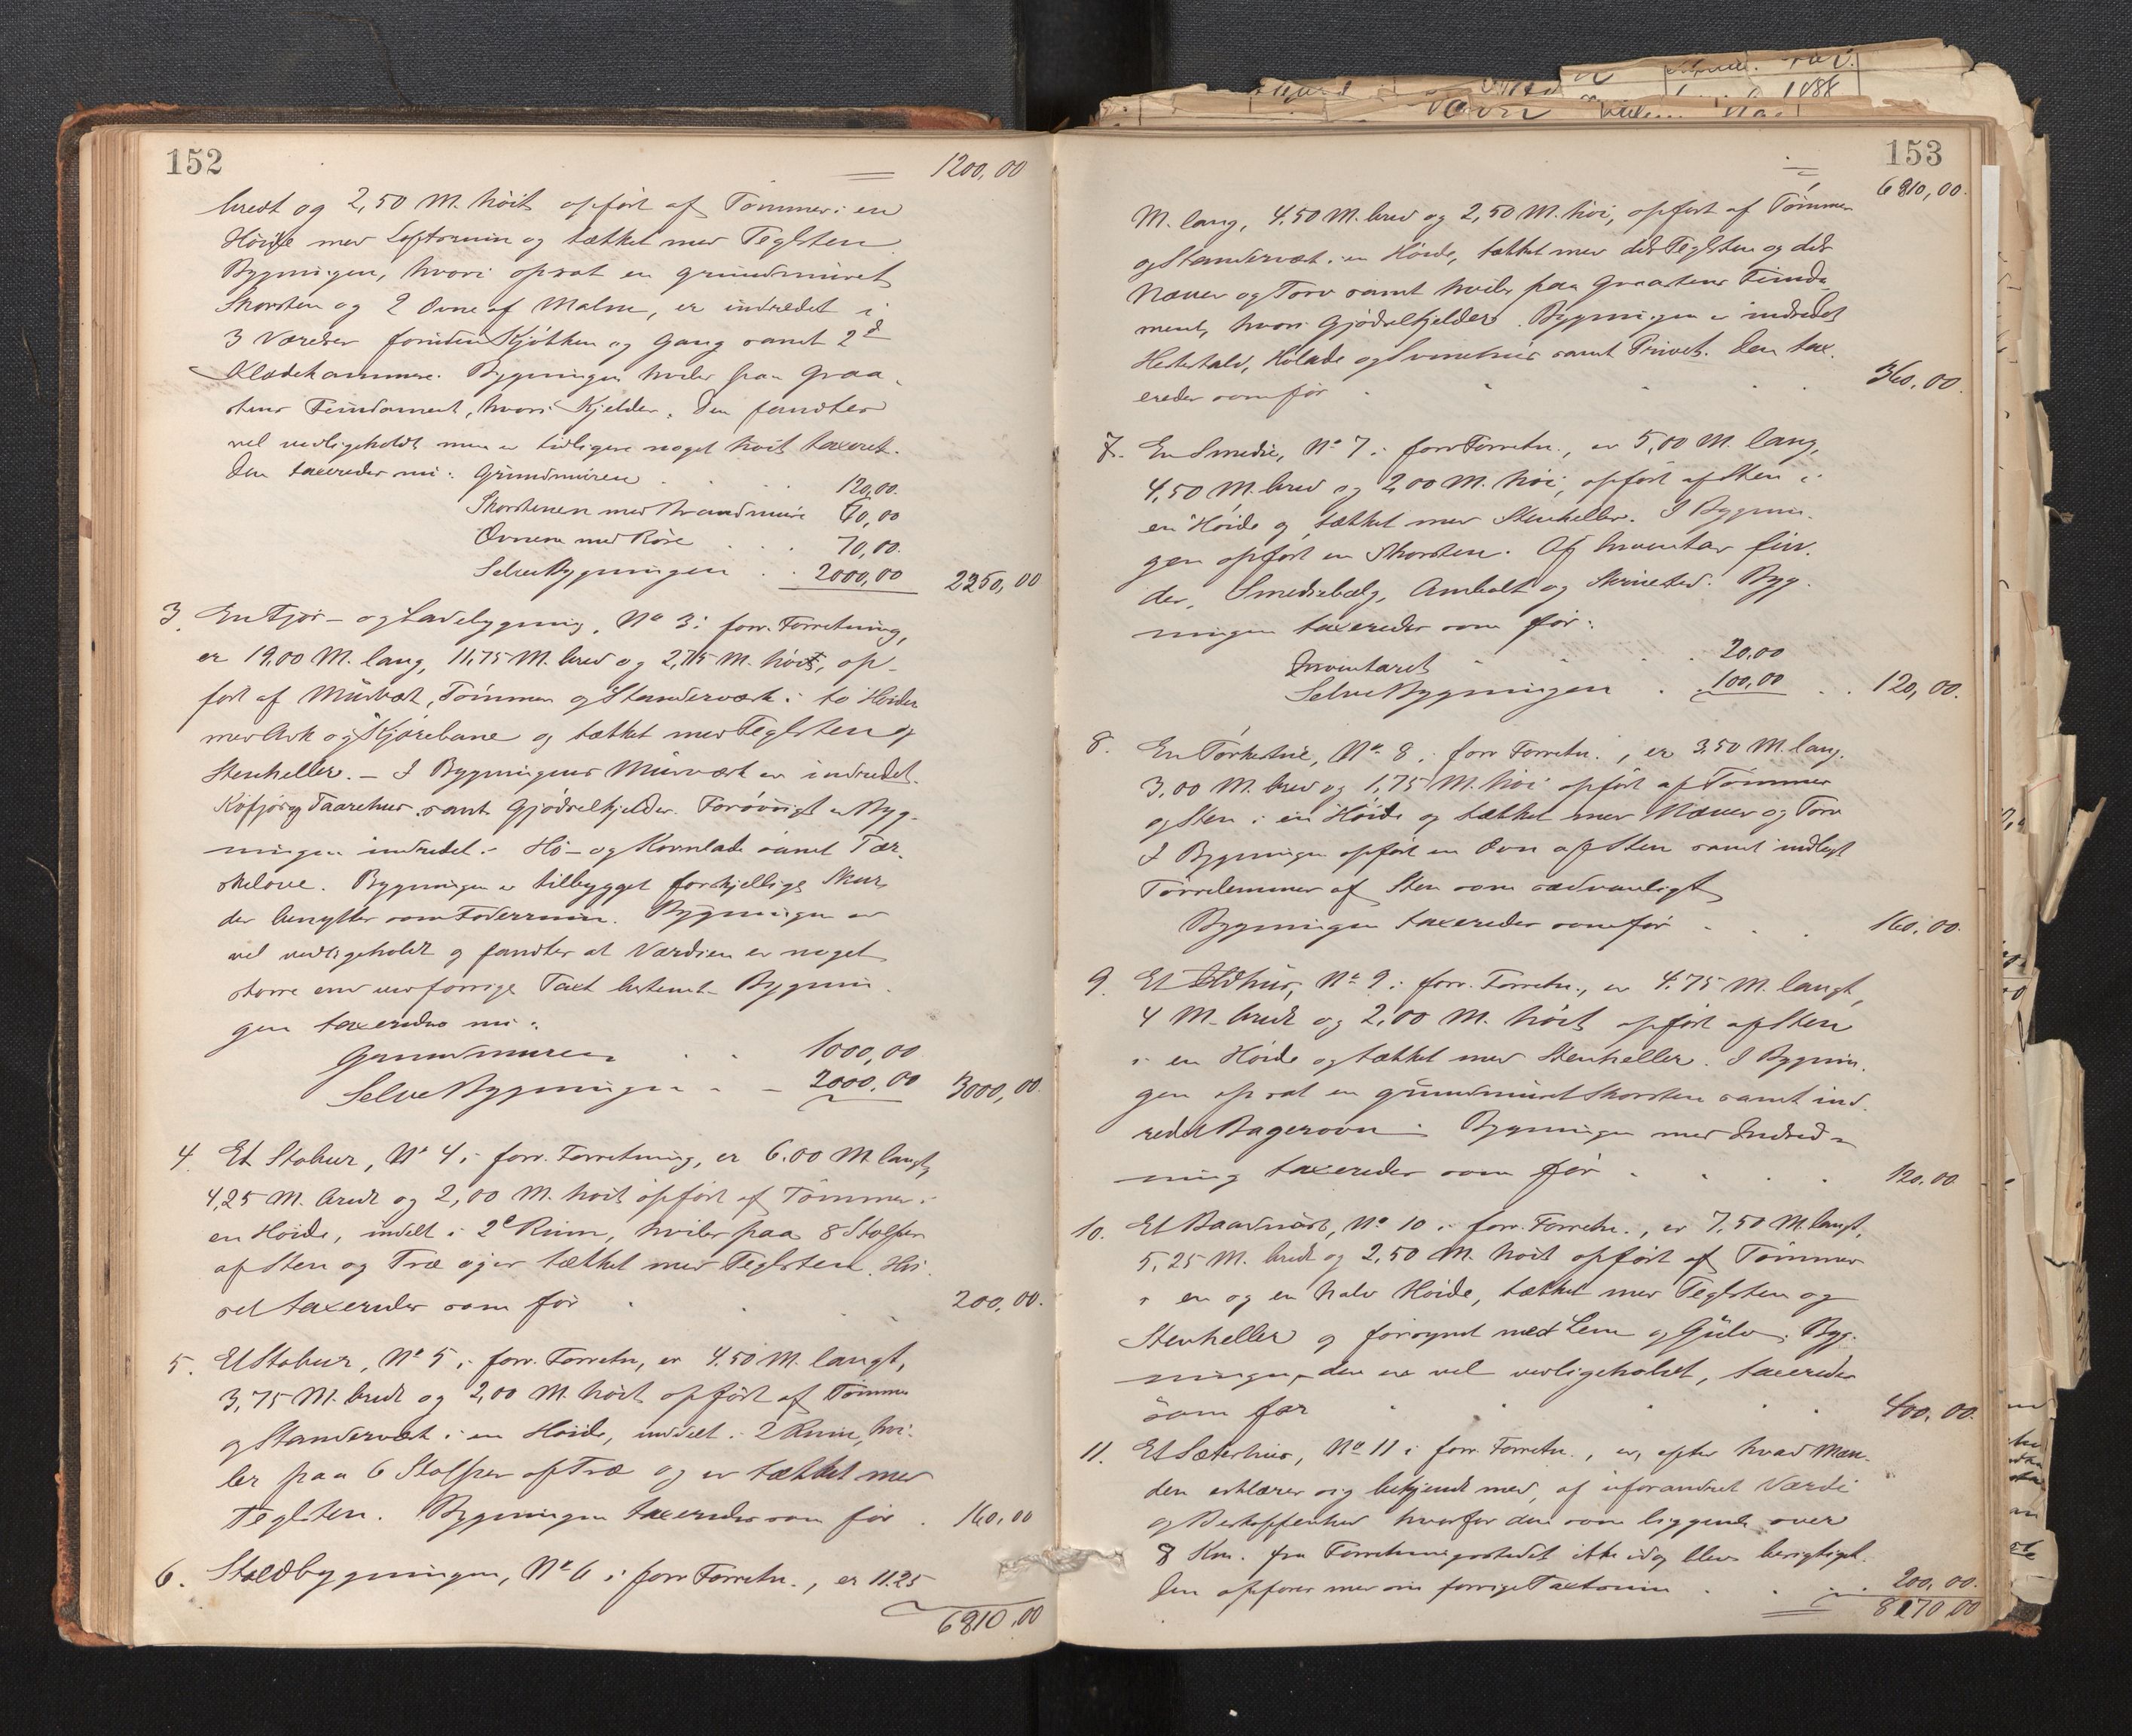 152
1200,00
bredt og 2,50 M. höit opført af Tømmer i en
Høide med Loftsrum og tækket med Teglsten
Bygningen, hvori opsat en grundmuret
Skorsten og 2 Ovne af Malm, er indredet i
3 Værelser foruden Kjøkken og Gang samt 2de
Klædekammere. Bygningen hviler paa Graa-
stens Fundament, hvori Kjelder. Den fandtes
vel vedligeholdt men er tidligere noget höit taxeret.
Den taxeredes nu: Grundmuren . . . 120,00.
Skorstenen med Brandmure 60,00
Ovnene med Rør . . . 70,00.
Selve Bygningen . . 2000,00 2250,00
3. En Fjøs- og Ladebygning, No 3 i forr. Forretning,
er 19,00 M. lang, 11,75 M. bred og 2,75 M. höi, op-
ført af Murværk, Tømmer og Standerværk i to Høider
med Ark og Kjørebane og tækket med Teglsten og
Stenheller. - I Bygningens Murværk er indredet
Kofjøs og Faarehus samt Gjødselkjelder. Forøvrigt er Byg-
ningen indredet i Hø- og Kornlade samt Tær-
skelove. Bygningen er tilbygget forskjellige Skur,
der benyttes som Foderrum. Bygningen er
vel vedligeholdt og fandtes at Værdien er noget
større end ved forrige Taxt bestemt. Bygnin-
gen taxeredes nu:
Grundmuren . . 1000,00
Selve Bygningen . - 2000,00 3000,00.
4. Et Stabur, No 4 i forr. Forretning, er 6.00 M. langt,
4,25 M. bredt og 2,00 M. höit opført af Tømmer i
en Høide, inddelt i 2de Rum, hviler paa 8 Stolper
af Sten og Træ og er tækket med Teglsten. Hu-
set taxeredes som før . . . 200,00.
5. Et Stabur, No 5 i forr. Forretn, er 4.50 M. langt,
3,75 M. bredt og 2,00 M. höit opført af Tømmer
og Standerværk i en Høide, inddelt i 2 Rum, hvi-
ler paa 6 Stolper af Træ og er tækket med
Teglsten. Bygningen taxeredes som før . 160,00
6. Staldbygningen, No 6 i forr Forretn., er 11.25
6810,00
153
6810,00.
M. lang, 4,50 M. bred og 2,50 M. höi, opført af Tømmer
og Standerværk i en Høide, tækket med dels Teglsten og dels
Næver og Torv samt hviler paa Graastens Funda-
ment, hvori Gjødselkjelder. Bygningen er indredet
Hestestald, Hølade og Svinehus samt Privet. Den tax-
eredes som før . . . . . 360,00.
7. En Smedie, No 7 i forr Forretn., er 5,00 M. lang,
4,50 M. bred og 2,00 M. höi, opført af Sten i
en Høide og tækket med Stenheller. I Bygnin-
gen opført en Skorsten. Af Inventar fin-
des, Smediebælg, Ambolt og Skruested. Byg-
ningen taxeredes som før:
Inventaret . . . . 20.00
Selve Bygningen . . 100,00 . . 120,00.
8. En Tørkestue, No. 8 i forr Forretn., er 3,50 M. lang.
3,00 M. bred og 1,75 M. höi opført af Tømmer
og Sten i en Høide og tækket med Næver og Torv
I Bygningen opført en Ovn af Sten samt indlagt
Tørrelemmer af Sten som sædvanligt
Bygningen taxeredes som før . . . 160,00.
9. Et Ildhus, No 9 i forr. Forretn., er 4.75 M. langt,
4 M. bredt og 2,00 M. höit opført af Sten
i en Høide og tækket med Stenheller. I Bygnin-
gen opsat en grundmuret Skorsten samt ind-
redet Bagerovn. Bygningen med Indred-
ning taxeredes som før . . . . 120,00
10. Et Baadnøst, No 10 i forr. Forretn., er 7,50 M. langt,
5,25 M. bredt og 2,50 M. höit opført af Tømmer
i en og en halv Høide, tækket med Teglsten og
Stenheller og forsynet med Lem og Gulv. Byg-
ningen, der er vel vedligeholdt, taxeredes
som før . . . . . 400,00.
11. Et Sæterhus, No 11 i forr. Forretn., er, efter hvad Mæn-
den erklærer sig bekjendt med, af uforandret Værdi
og Beskaffenhed hvorfor den som liggende over
8 Km. fra Forretningsstedet ikke idag blev besigtiget.
Den opføres med sin forrige Taxtsum . . . 200,00.
8170,00